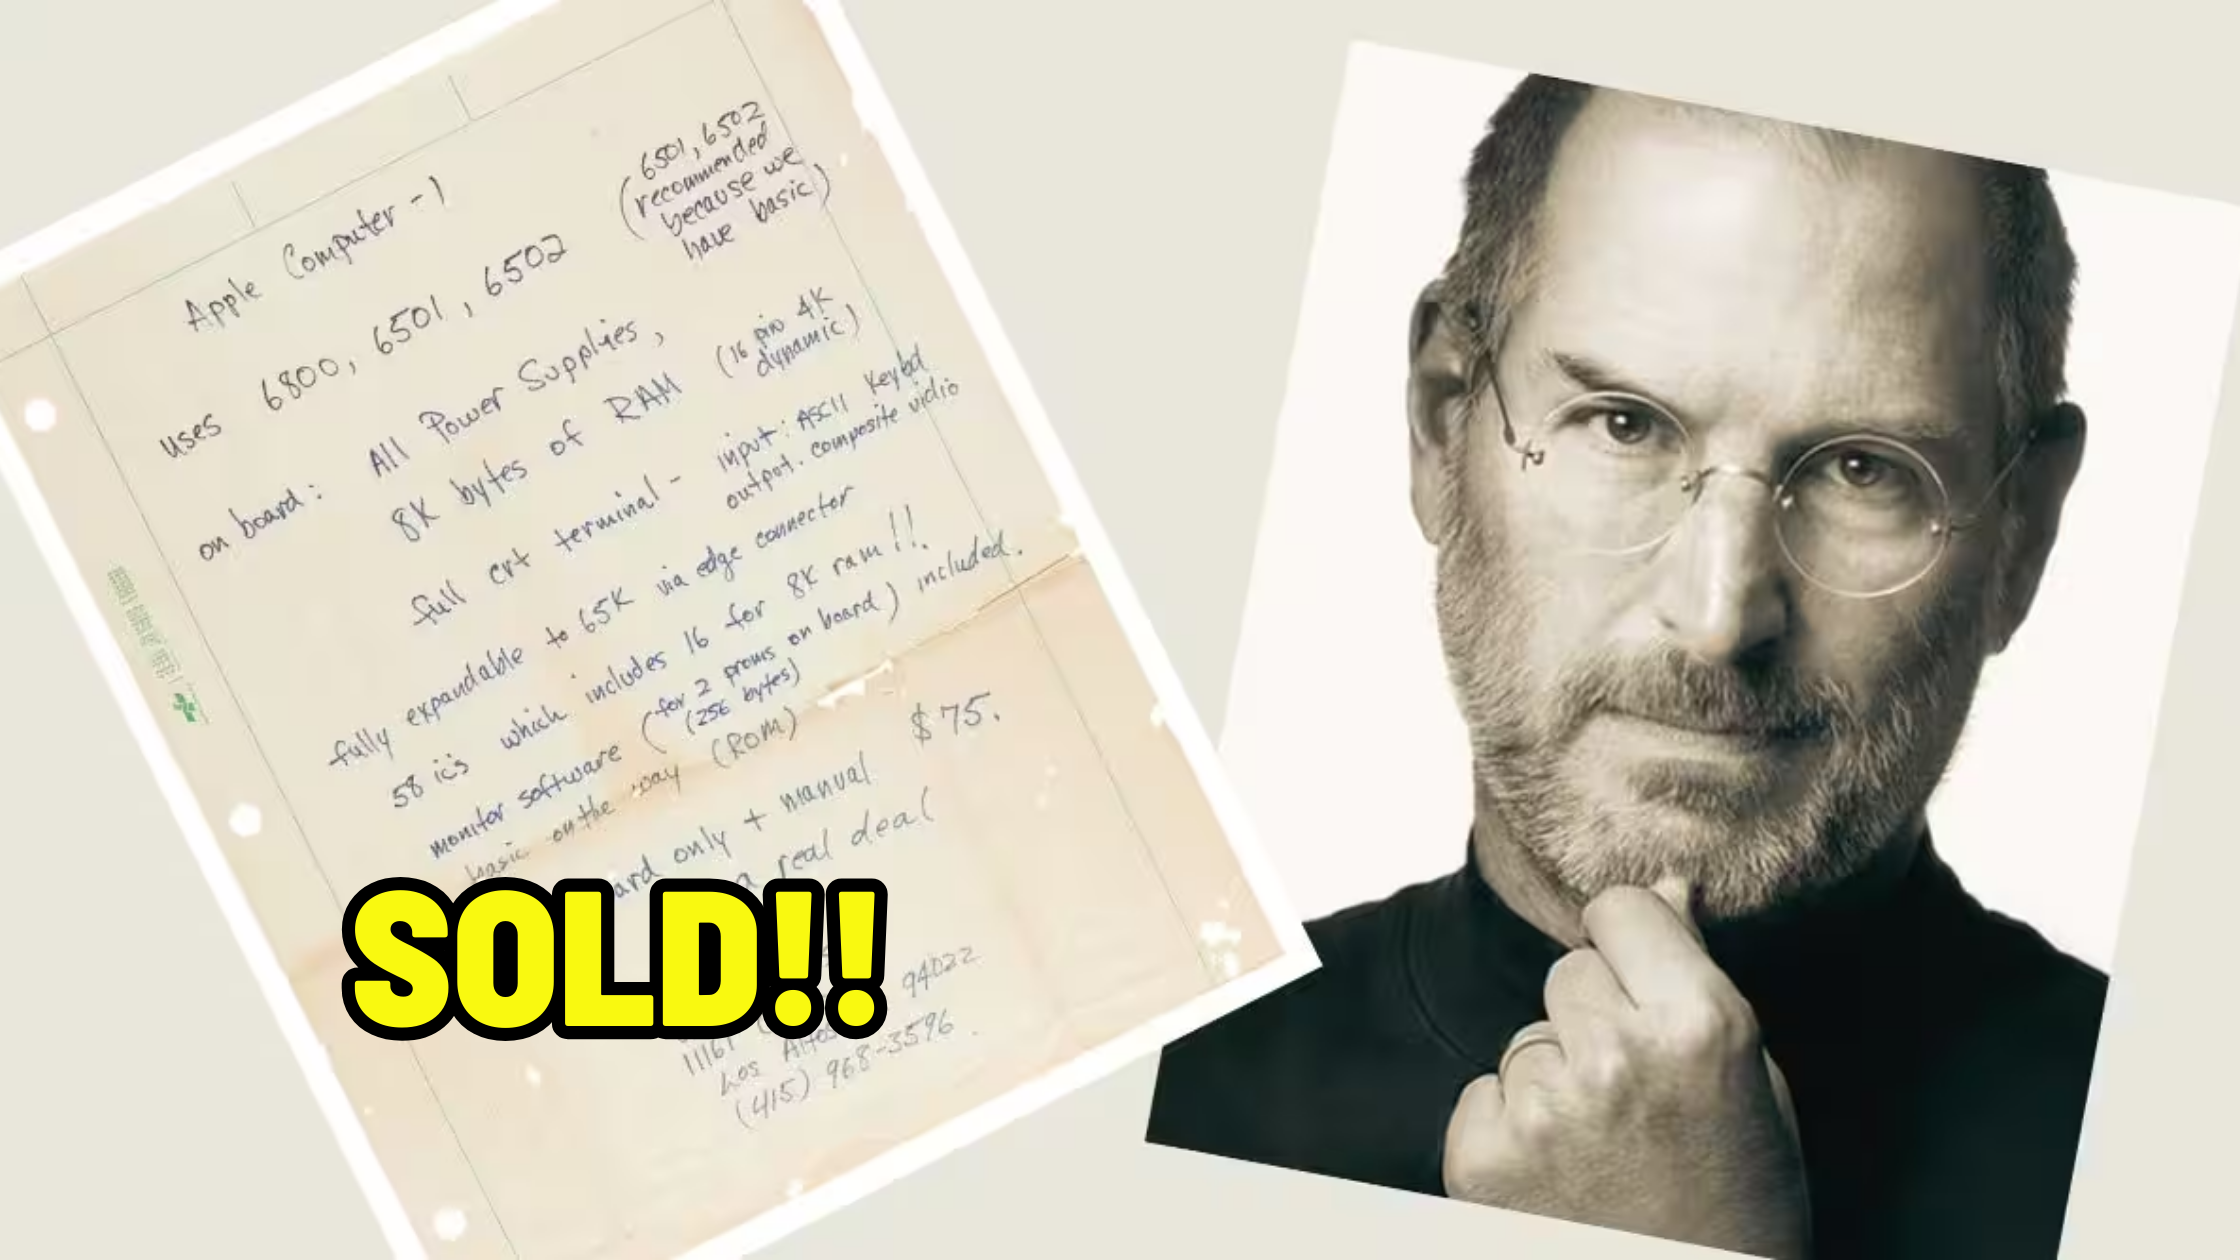 Apple Computer - 1
uses 6800, 6501, 6502
(6501, 6502
recommended
because we
have basic)
on board: All Power Supplies,
8K bytes of RAM (16 pin 4K
dynamic)
full crt terminal - input: ASCII Keybd
output: composite vidio
fully expandable to 65K via edge connector
58 ic's which includes 16 for 8K ram!!.
monitor software (for 2 proms on board) included.
(256 bytes)
basic on the way (ROM)
only + manual $75.
a real deal
SOLD!!
11161
Los Altos 94022
(415) 968-3596.